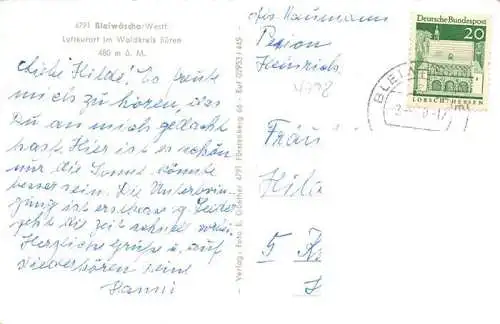 4791 Bleiwäsche/Westf.
Luftkurort im Waldkreis Büren
480 m ü. M.
Liebe Hilde! Es freute
mich zu hören, das
Du an mich gedacht
hast. Hier ist es schön
nur die Sonne könnte
besser sein. Die Unterbrin-
gung ist erstkass g. Leider
geht die Zeit schnell vorbei.
Herzliche Grüße u. auf
Wiederhören Deine
Hanni
Verlag: Foto E. Günther 4791 Fürstenberg 68 - Ruf 02953/445
Naumann
Pesion
Heinrich
4798
Deutsche Bundespost
20
LORSCH/HESSEN
BLEI
Fräu
Hil
5 K